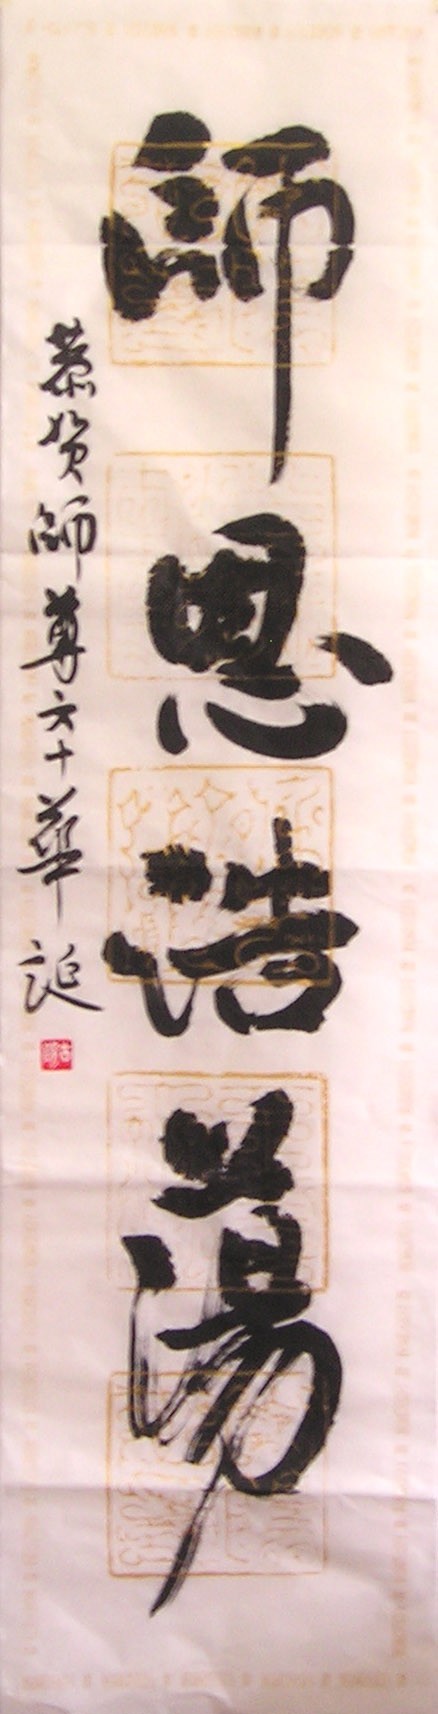 師恩浩蕩
恭賀師尊六十華誕